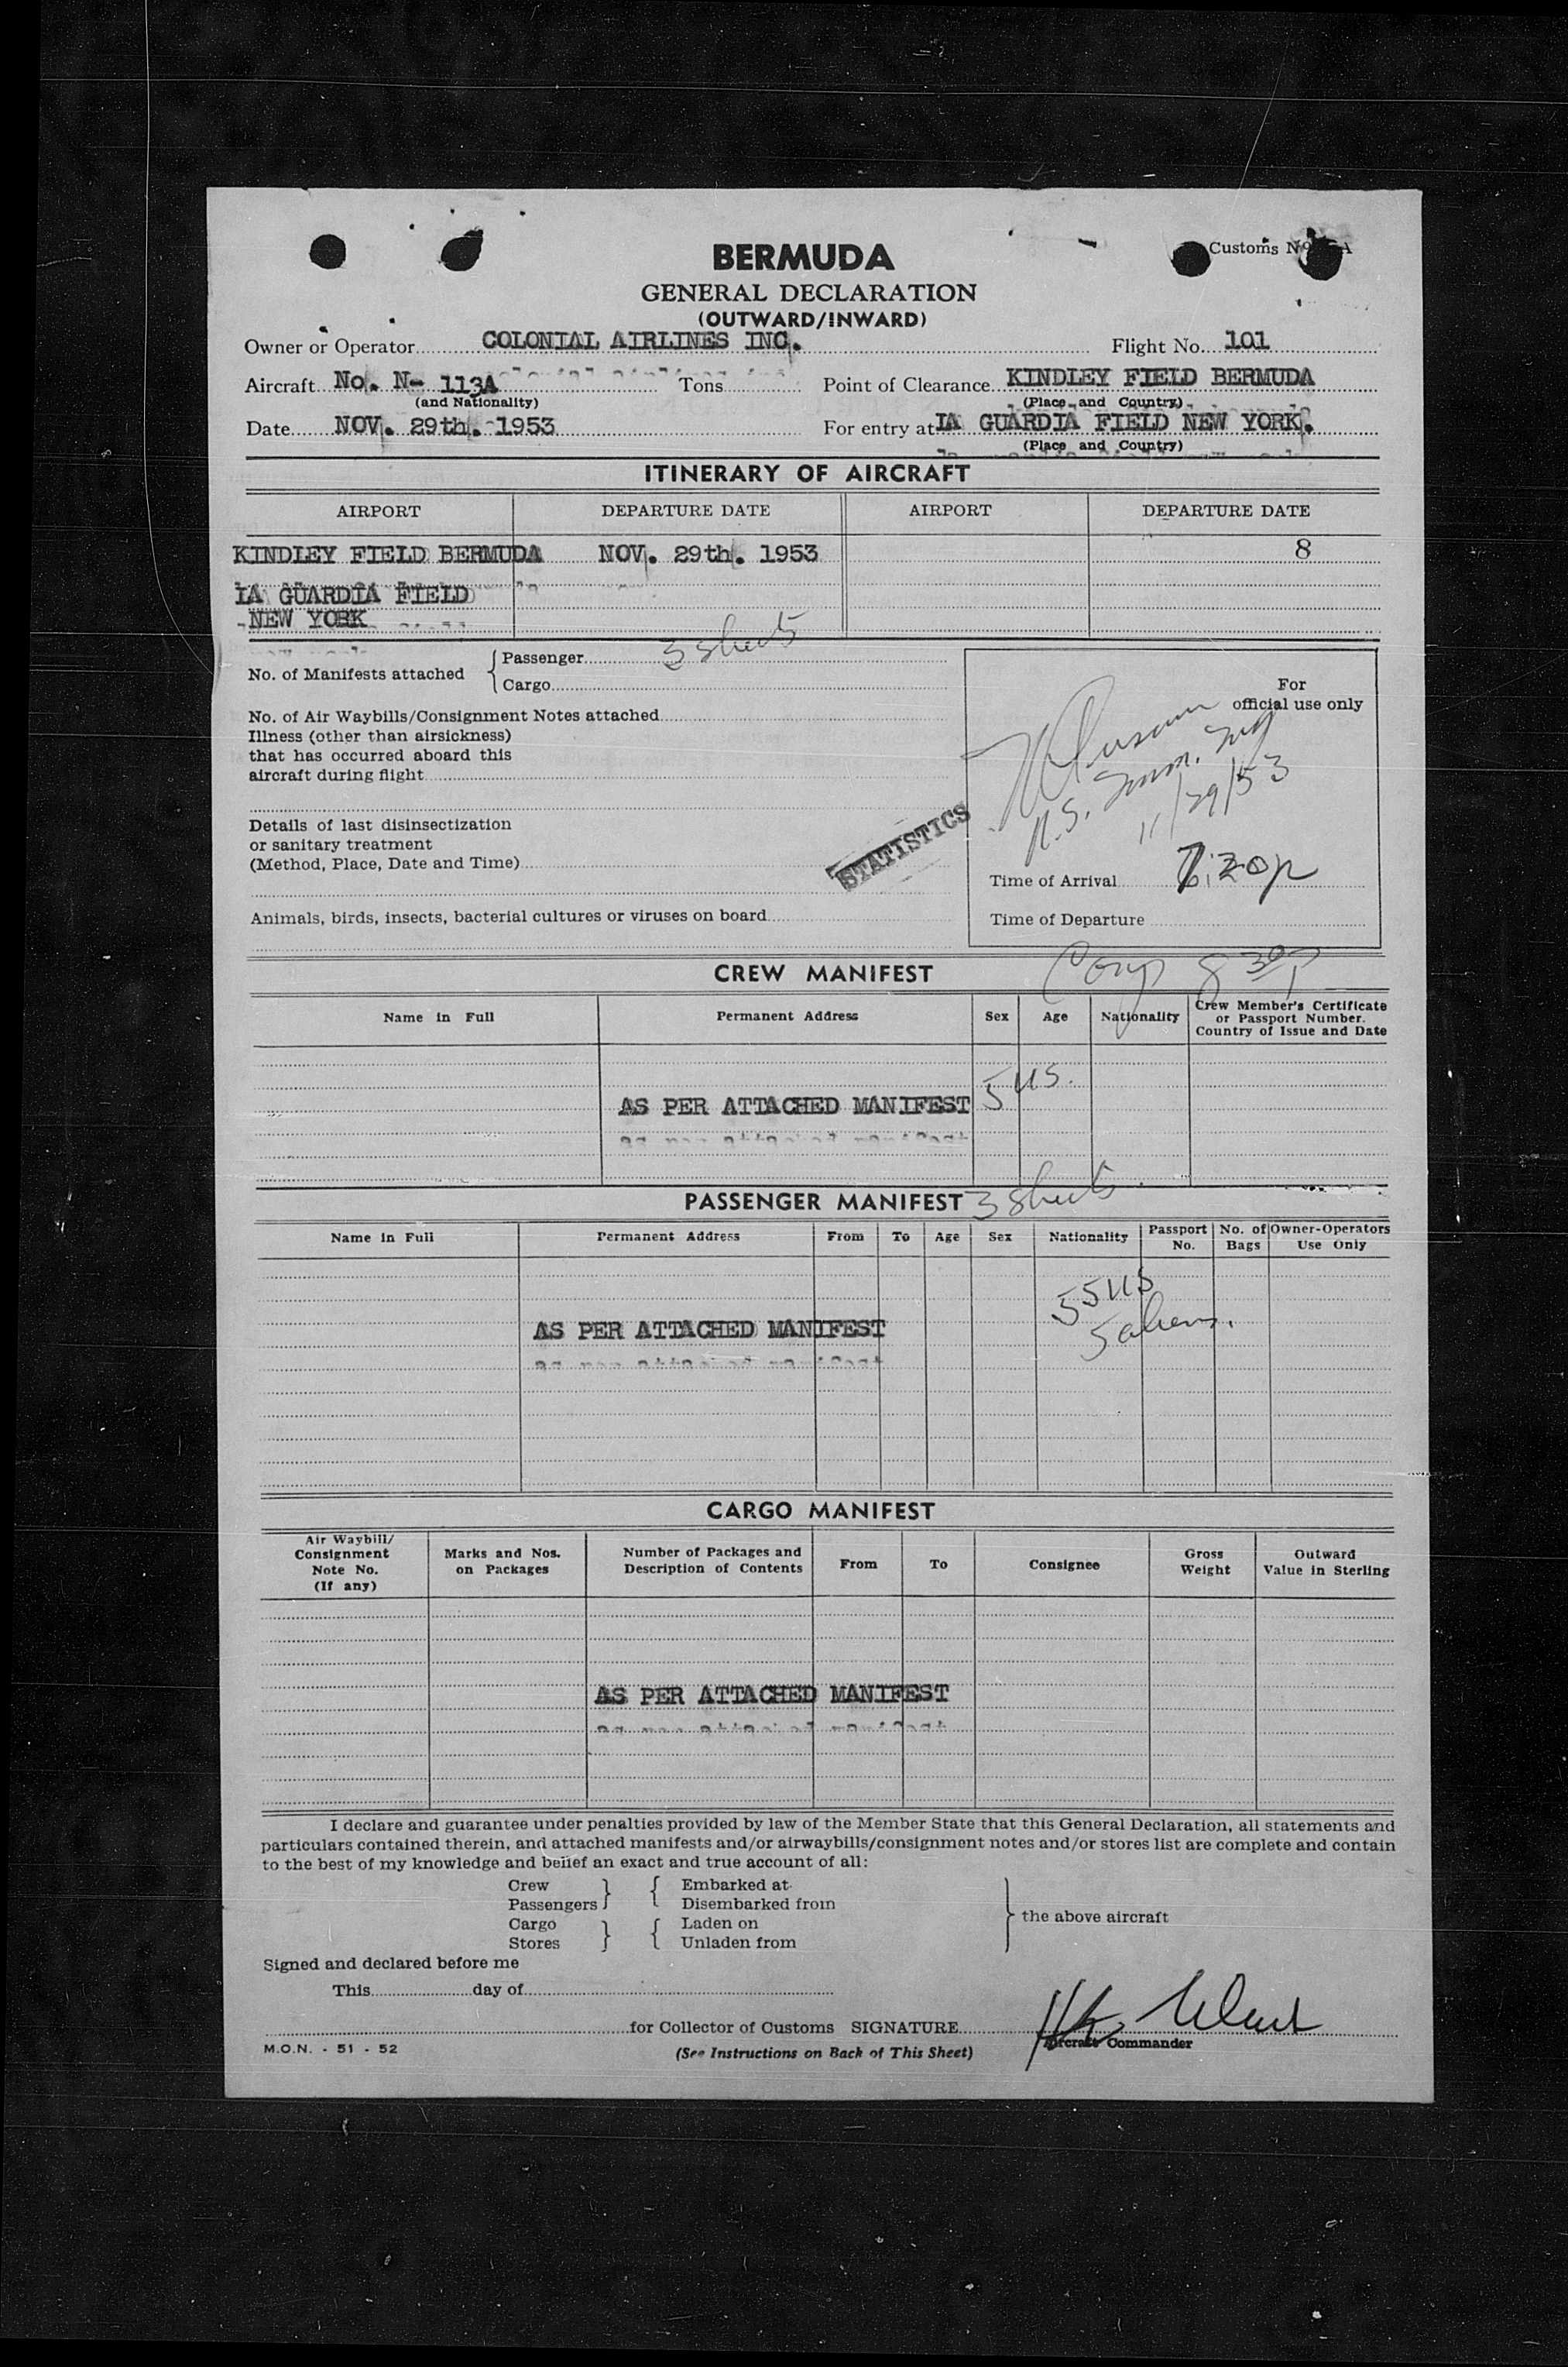 Customs
BERMUDA
GENERAL DECLARATION
(OUTWARD/INWARD)
Owner or Operator COLONIAL AIRLINES INC. Flight No. 101
Aircraft No. N- 113A Tons Point of Clearance KINDLEY FIELD BERMUDA
(and Nationality) (Place and Country)
Date NOV. 29th. 1953 For entry at LA GUARDIA FIELD NEW YORK.
(Place and Country)
ITINERARY OF AIRCRAFT
AIRPORT DEPARTURE DATE AIRPORT DEPARTURE DATE
KINDLEY FIELD BERMUDA NOV. 29th. 1953 8
LA GUARDIA FIELD
NEW YORK
No. of Manifests attached
Passenger 3 sheets
Cargo
No. of Air Waybills/Consignment Notes attached
Illness (other than airsickness)
that has occurred aboard this
aircraft during flight
Details of last disinsectization
or sanitary treatment
(Method, Place, Date and Time)
Animals, birds, insects, bacterial cultures or viruses on board
STATISTICS
For
official use only
11/29/53
Time of Arrival
Time of Departure
CREW MANIFEST
Name in Full Permanent Address Sex Age Nationality Crew Member's Certificate
or Passport Number.
Country of Issue and Date
5 US.
AS PER ATTACHED MANIFEST
PASSENGER MANIFEST 3 sheets
Name in Full Permanent Address From To Age Sex Nationality Passport No. No. of Bags Owner-Operators Use Only
55 US
AS PER ATTACHED MANIFEST
5 aliens.
CARGO MANIFEST
Air Waybill/
Consignment
Note No.
(If any)
Marks and Nos.
on Packages
Number of Packages and
Description of Contents
From To Consignee
Gross
Weight
Outward
Value in Sterling
AS PER ATTACHED MANIFEST
I declare and guarantee under penalties provided by law of the Member State that this General Declaration, all statements and
particulars contained therein, and attached manifests and/or airwaybills/consignment notes and/or stores list are complete and contain
to the best of my knowledge and belief an exact and true account of all:
Crew Embarked at
Passengers Disembarked from
Cargo Laden on the above aircraft
Stores Unladen from
Signed and declared before me
This day of
for Collector of Customs SIGNATURE
Aircraft Commander
M.O.N. - 51 - 52 (See Instructions on Back of This Sheet)